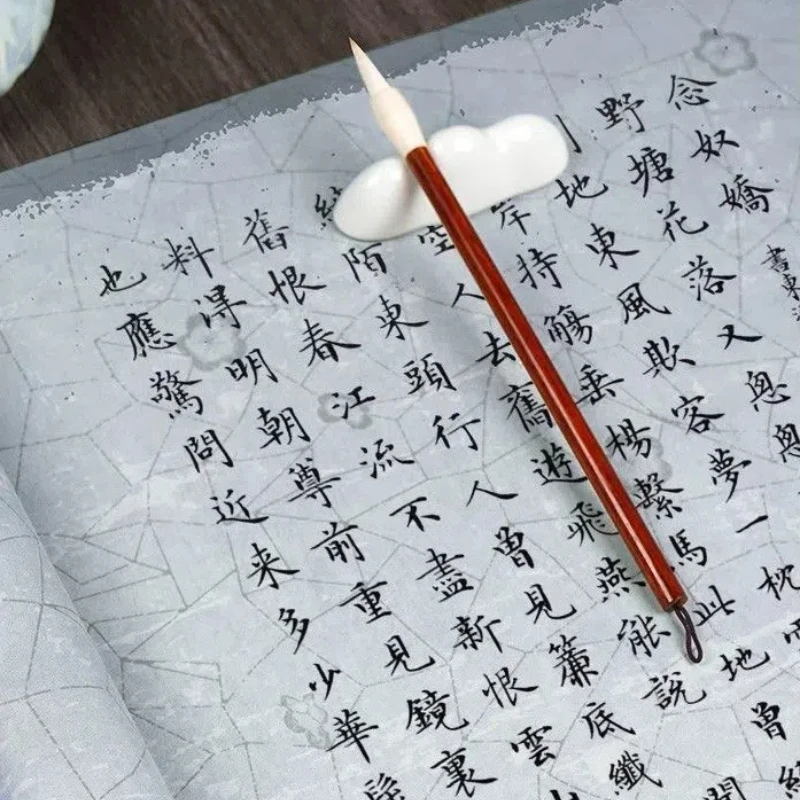 念奴嬌 書東
野塘花落又怱怱
地東風欺客夢一枕
岸持觴垂楊繫馬此地曾
空人去舊遊飛燕能說
陌東頭行人曾見簾底纖
舊恨春江流不盡新恨雲
料得明朝尊前重見鏡裏
也應驚問近来多少華髮